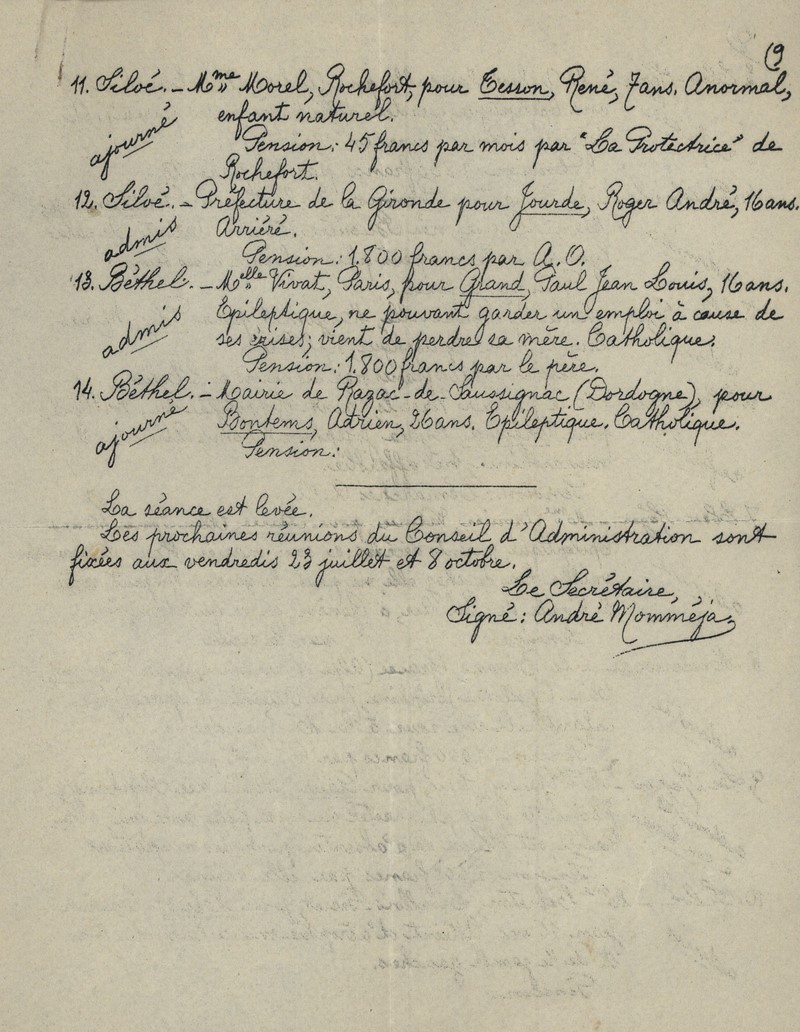 (9
11. Siloé. - Mme Morel, Rochefort, pour Tesson, René, 7 ans. Anormal,
ajourné
enfant naturel.
Pension: 45 francs par mois par "La Protectrice" de
Rochefort.
12. Siloé. - Préfecture de la Gironde pour Jourde, Roger André, 16 ans.
admis
Arriéré.
Pension: 1.800 francs par A. O.
13. Béthel. - Melle Vivat, Paris, pour Grand, Paul Jean Louis, 16 ans.
admis
Epileptique, ne pouvant garder un emploi à cause de
ses crises; vient de perdre sa mère. Catholique.
Pension: 1.800 francs par le père.
14. Béthel. - Mairie de Razac-de-Saussignac (Dordogne), pour
ajourné
Bontems, Adrien, 26 ans. Epileptique. Catholique.
Pension:
La séance est levée.
Les prochaines réunions du Conseil d'Administration sont
fixées aux vendredis 23 juillet et 8 octobre.
Le Secrétaire,
Signé: André Momméja.